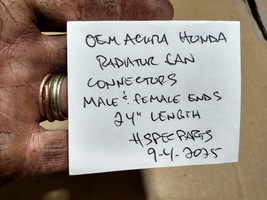 OEM ACURA HONDA
RADIATOR FAN
CONNECTORS
MALE & FEMALE ENDS
24" LENGTH
#SPECPARTS
9-4-2025